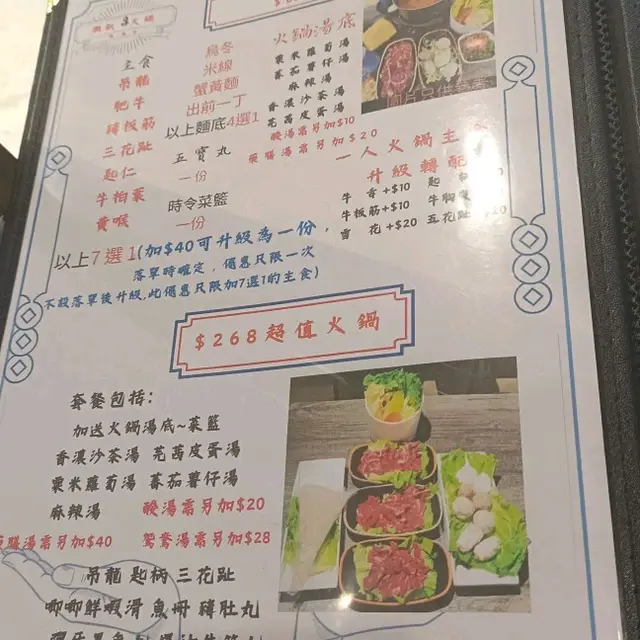 火鍋湯底
粟米蘿蔔湯
蕃茄薯仔湯
麻辣湯
香濃沙茶湯
芫茜皮蛋湯
酸湯需另加$10
藥膳湯需另加$20
主食
吊龍
肥牛
豬板筋
三花趾
匙仁
牛柏葉
黃喉
烏冬
米線
蟹黃麵
出前一丁
以上麵底4選1
五寶丸
一份
時令菜籃
一份
一人火鍋主
升級轉配
牛舌+$10
牛板筋+$10
雪花+$20
五花趾+$20
以上7選1(加$40可升級為一份,
落單時確定,優惠只限一次
不設落單後升級,此優惠只限加7選1的主食)
$268超值火鍋
套餐包括:
加送火鍋湯底~菜籃
香濃沙茶湯 芫茜皮蛋湯
粟米蘿蔔湯 蕃茄薯仔湯
麻辣湯 酸湯需另加$20
藥膳湯需另加$40 鴛鴦湯需另加$28
吊龍 匙柄 三花趾
唧唧鮮蝦滑 魚冊 豬肚丸